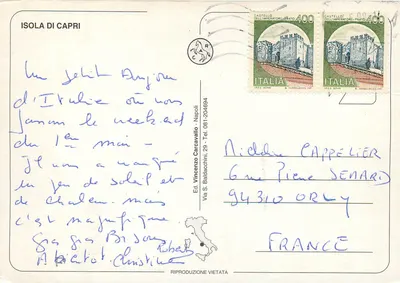 ISOLA DI CAPRI
Un petit bonjour
d'Italie où nous
passons le weekend
du 1er mai -
Il nous a manqué
un peu de soleil et
de chaleur mais
c'est magnifique.
Gros gros Bisous
A bientôt Christine
Ed. Vincenzo Carcavallo - Napoli
Via S. Baldacchini, 29 - Tel. 081-204694
400
ITALIA
400
ITALIA
CAPPELIER
6 rue Pierre SEMARD
94310 ORLY
FRANCE
RIPRODUZIONE VIETATA